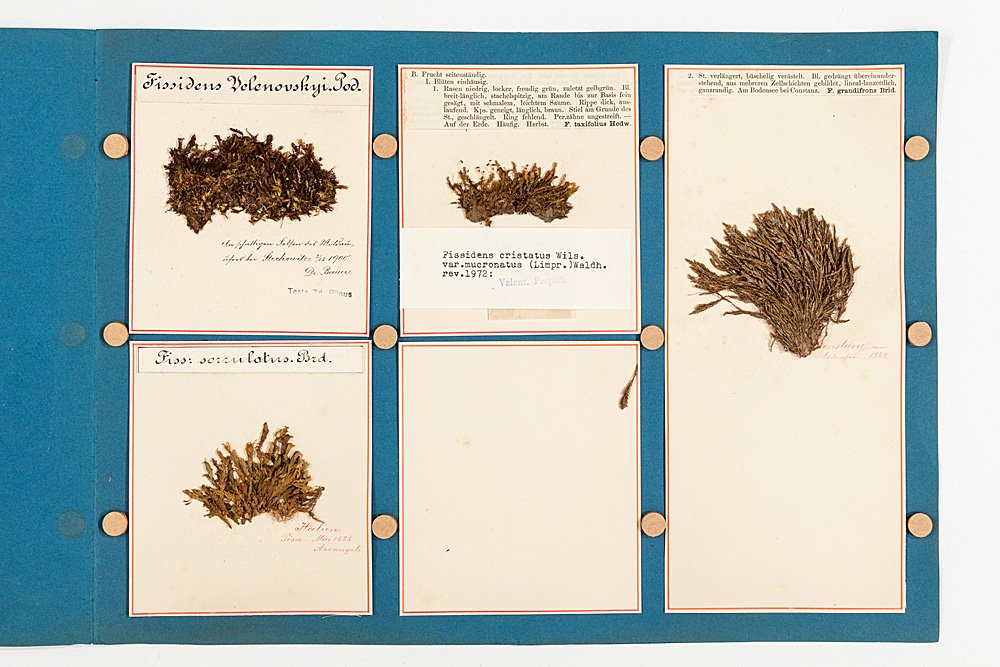 Fissidens Velenovskyi. Pod.
An schattigen Felsen des Moldau-
ufers bei Stechowitz 1900
Dr. Bauer
Teste Zd. Pilous
B. Frucht seitenständig.
I. Blüten einhäusig.
1. Rasen niedrig, locker, freudig grün, zuletzt gelbgrün. Bl.
breit-länglich, stachelspitzig, am Rande bis zur Basis fein
gesägt, mit schmalem, leichtem Saume. Rippe dick, aus-
laufend. Kps. geneigt, länglich, braun. Stiel am Grunde des
St., geschlängelt. Ring fehlend. Per.zähne ungestreift. —
Auf der Erde. Häufig. Herbst. F. taxifolius Hedw.
Fissidens cristatus Wils.
var.mucronatus (Limpr.)Waldh.
rev.1972:
Valent. Pospíšil
2. St. verlängert, büschelig verästelt. Bl. gedrängt übereinander-
stehend, aus mehreren Zellschichten gebildet, lineal-lanzettlich,
ganzrandig. Am Bodensee bei Constanz. F. grandifrons Brid.
1868
Fiss: serrulatus. Brd.
Italien
Pisa. Mai 1884
Arcangeli